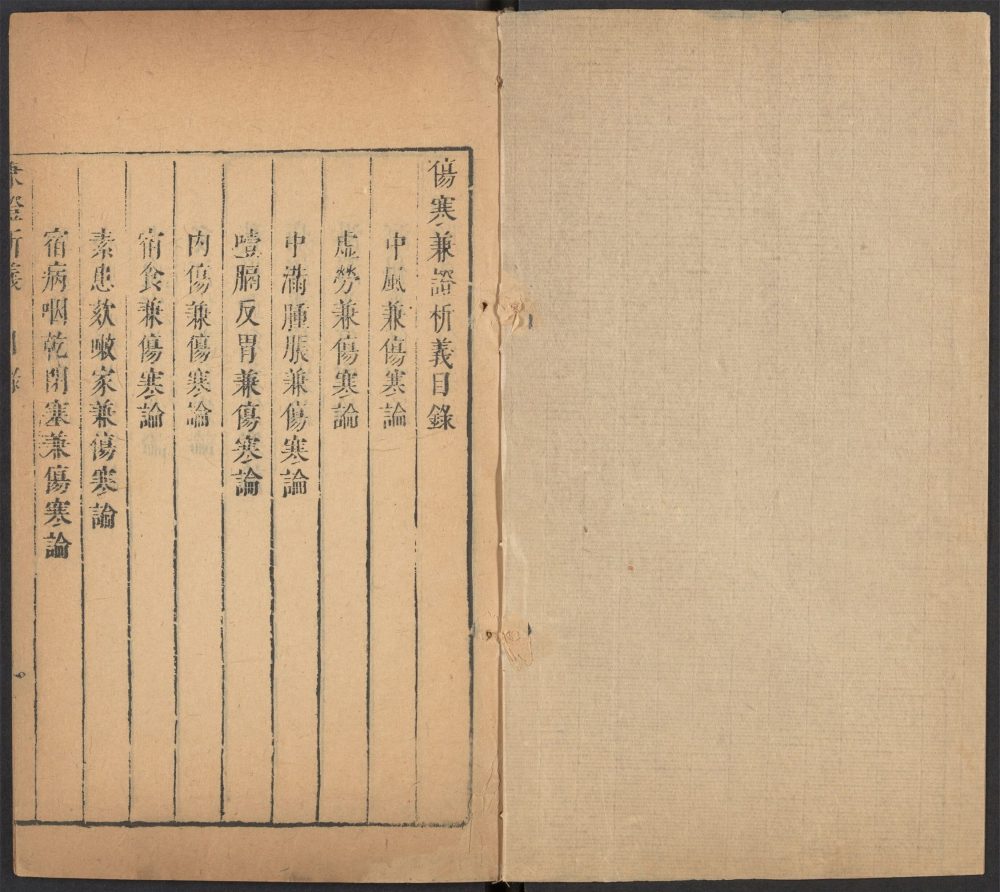 傷寒兼證析義目錄
中風兼傷寒論
虛勞兼傷寒論
中滿腫脹兼傷寒論
噎膈反胃兼傷寒論
內傷兼傷寒論
宿食兼傷寒論
素患欬嗽家兼傷寒論
宿病咽乾閉塞兼傷寒論
兼證析義 目錄